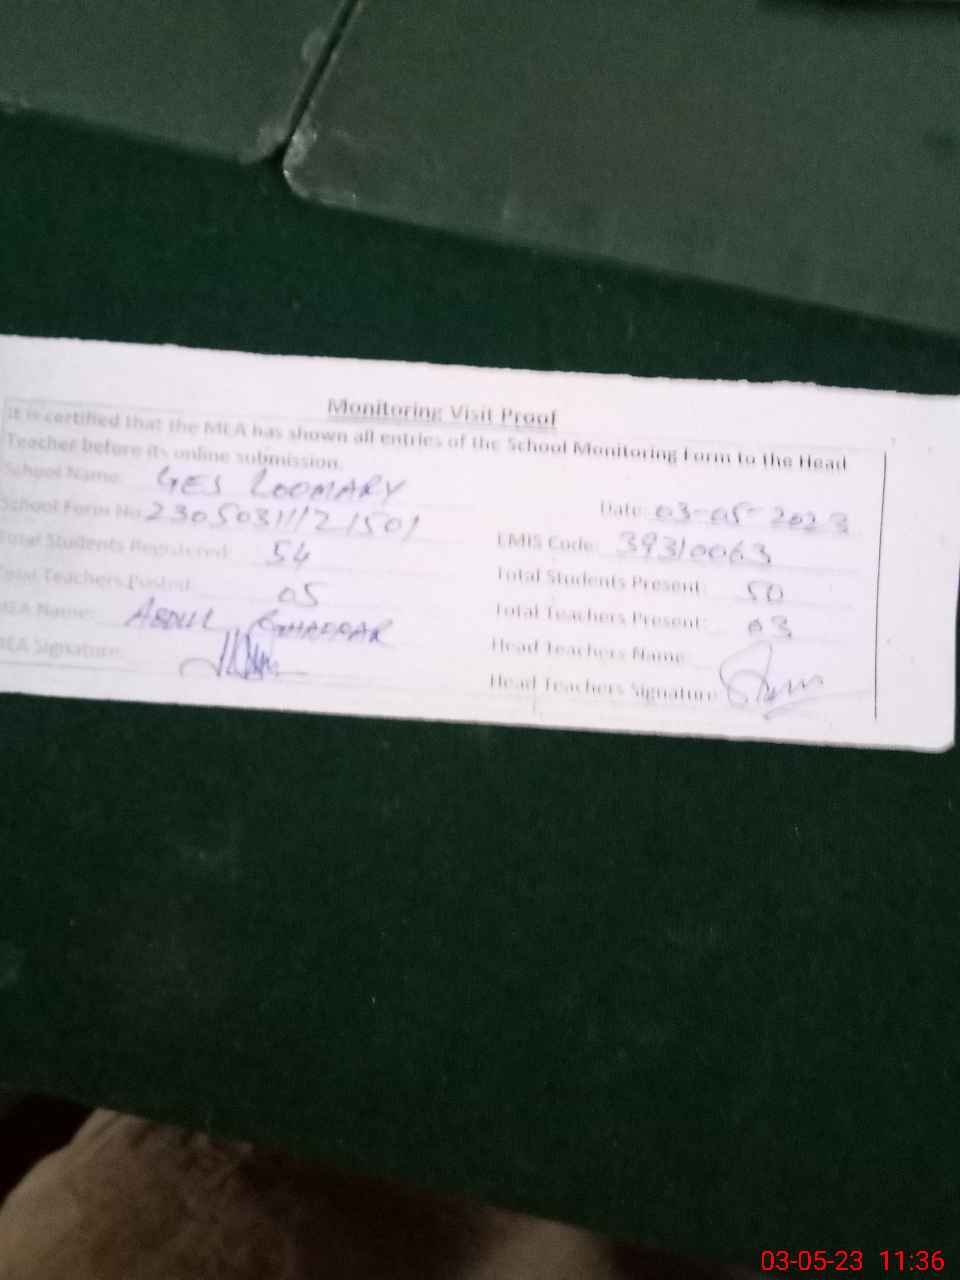 Monitoring Visit Proof
It is certified that the MEA has shown all entries of the School Monitoring Form to the Head
Teacher before its online submission.
School Name: GES LOOMARY
Date: 03-05-2023
School Form No. 23050311121501
EMIS Code: 39310063
Total Students Registered: 54
Total Students Present: 50
Total Teachers Posted: 05
Total Teachers Present: 03
MEA Name: ABDUL GHAFFAR
Head Teachers Name
MEA Signature:
Head Teachers Signature
03-05-23 11:36